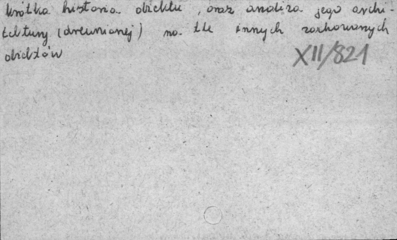 krótka historia obiektu, oraz analiza jego archi-
tektury (drewnianej) na tle innych zachowanych
obiektów
XII/821